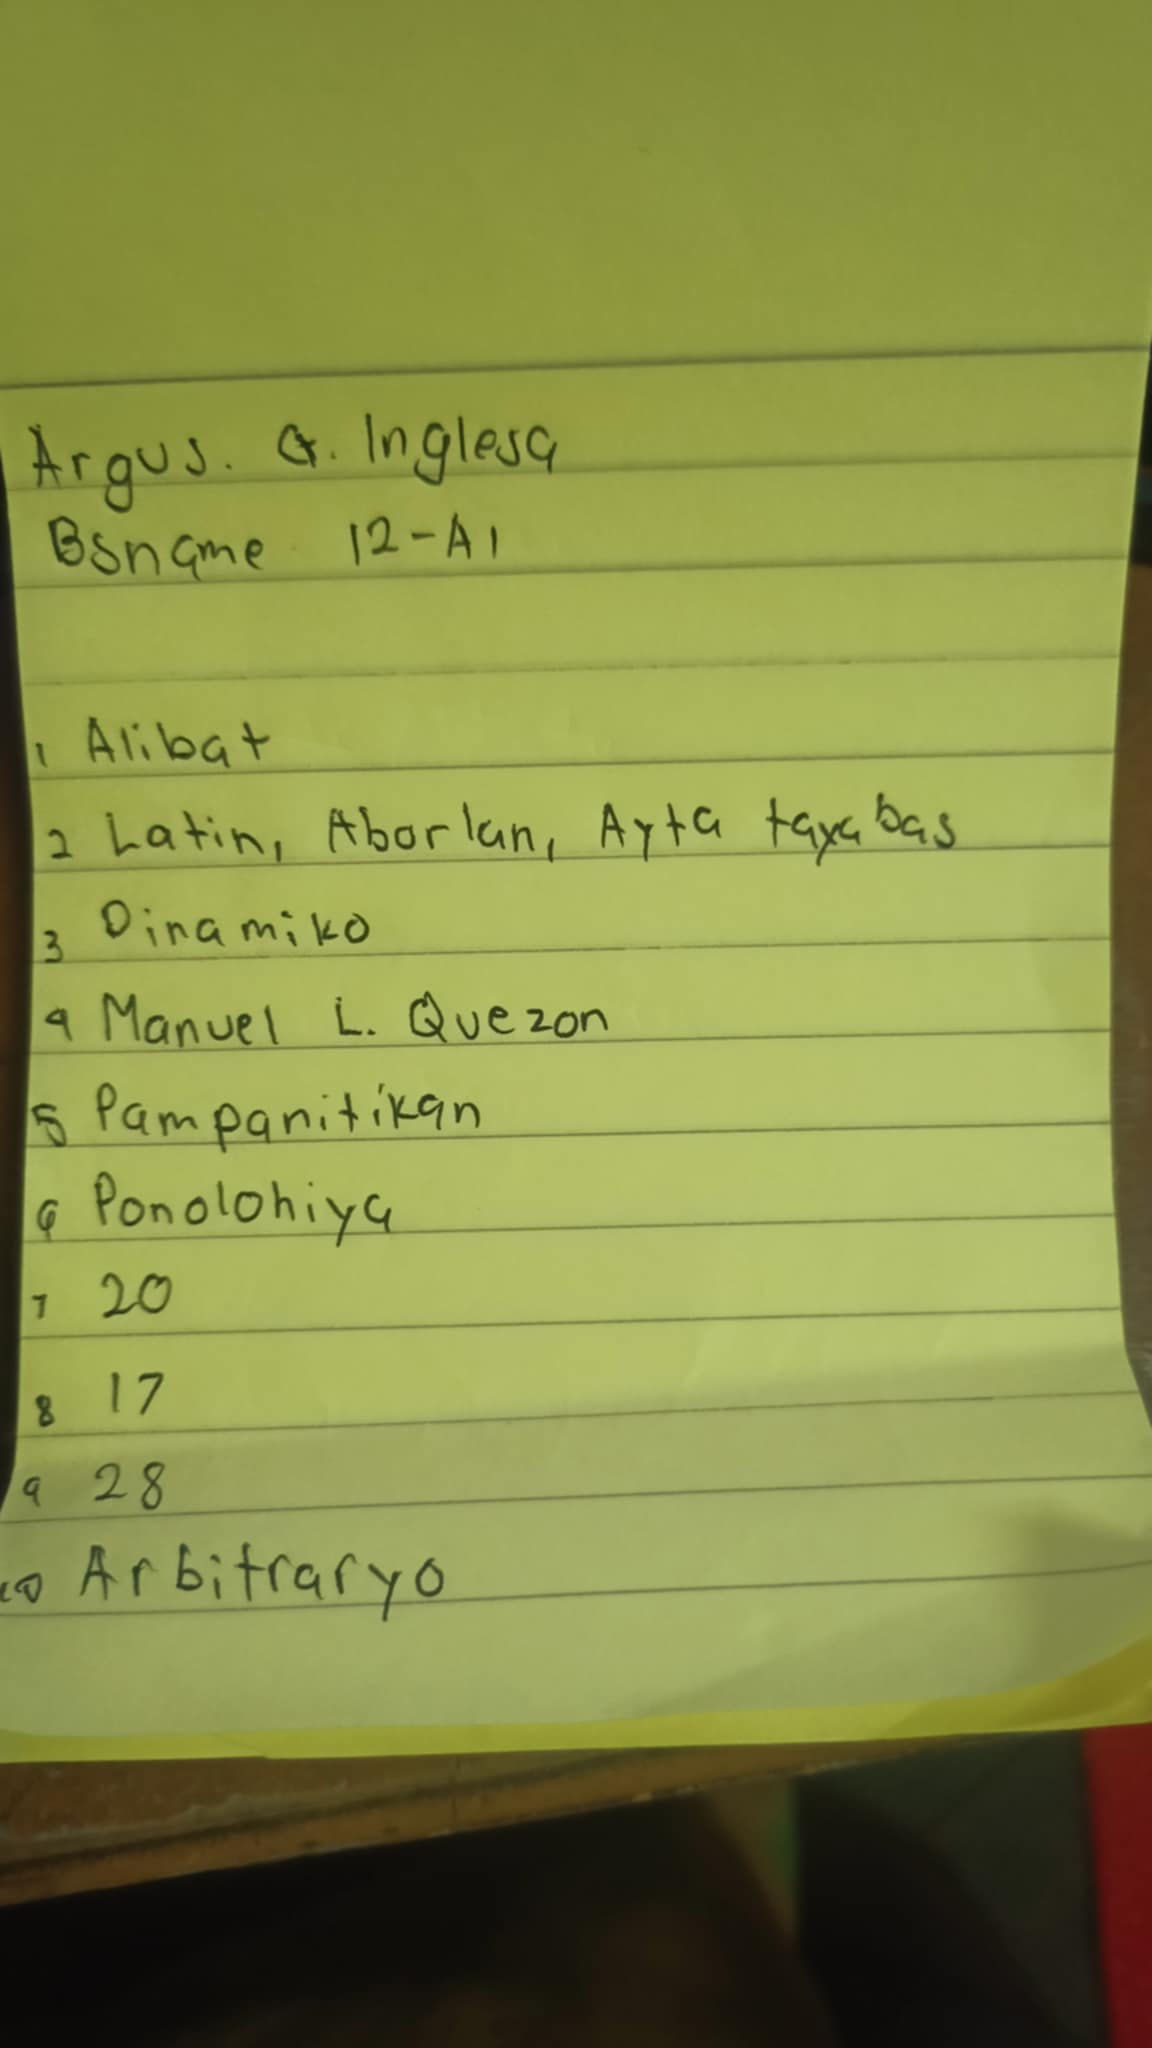 Argus. G. Inglesa
Bsname 12-A1
1 Alibat
2 Latin, Aborlan, Ayta tayabas
3 Dinamiko
4 Manuel L. Quezon
5 Pampanitikan
6 Ponolohiya
7 20
8 17
9 28
10 Arbitraryo